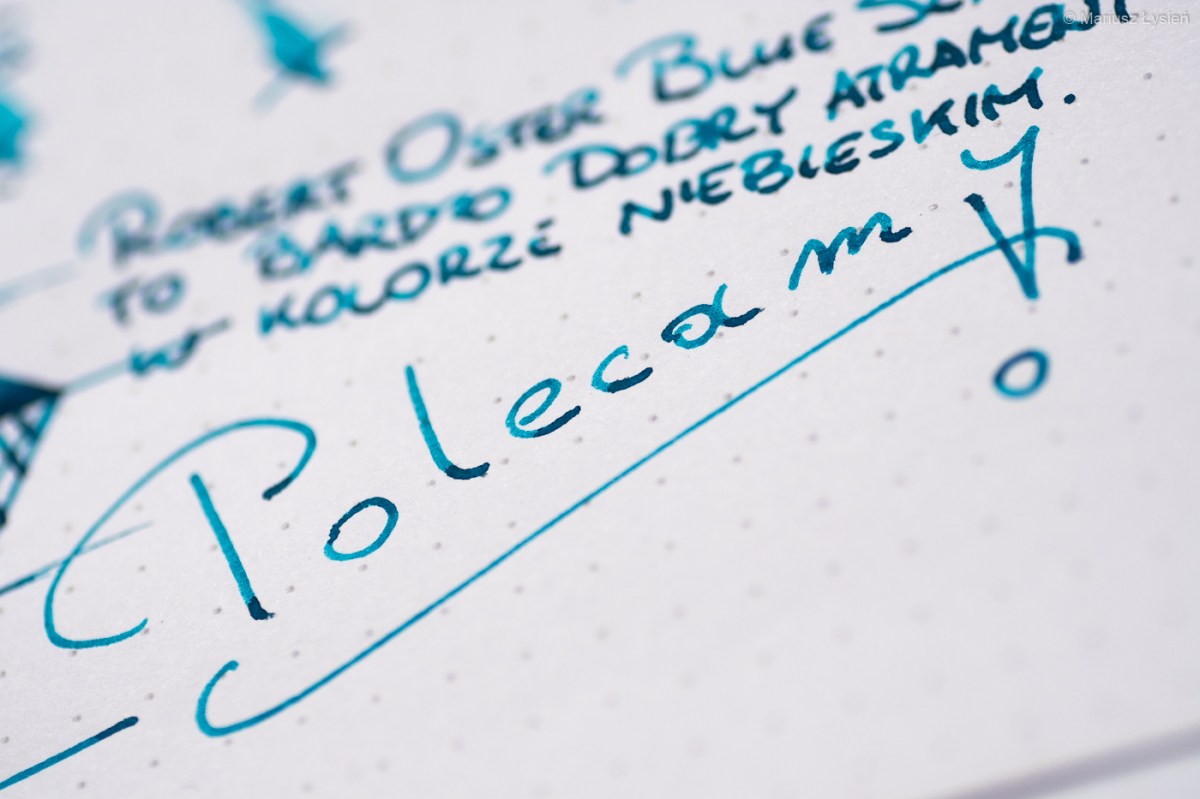 © Mariusz Łysień
ROBERT OSTER BLUE
TO BARDZO DOBRY ATRAMENT
W KOLORZE NIEBIESKIM.
Polecam!